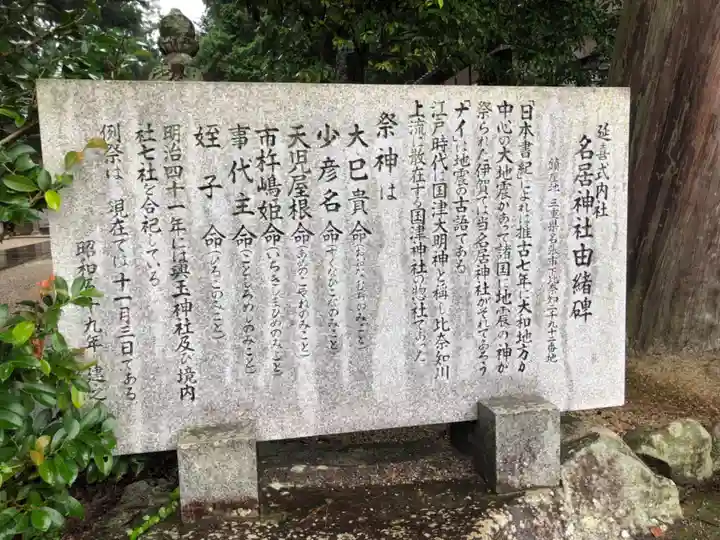 延喜式内社
名居神社由緒碑
鎮座地 三重県名張市下比奈知二千九十一番地
「日本書紀」によれば推古七年に大和地方が
中心の大地震があって諸国に地震の神が
祭られた伊賀では当名居神社がそれであろう
「ナイ」は地震の古語である
江戸時代は国津大明神と称し比奈知川
上流に散在する国津神社の惣社であった
祭神は
大巳貴命(おおなむちのみこと)
少彦名命(すくなひこなのみこと)
天児屋根命(あめのこやねのみこと)
市杵嶋姫命(いちきしまひめのみこと)
事代主命(ことしろぬしのみこと)
蛭子命(ひるこのみこと)
明治四十一年には興玉神社及び境内
社七社を合祀している
例祭は、現在では十一月三日である
昭和 十九年 建之